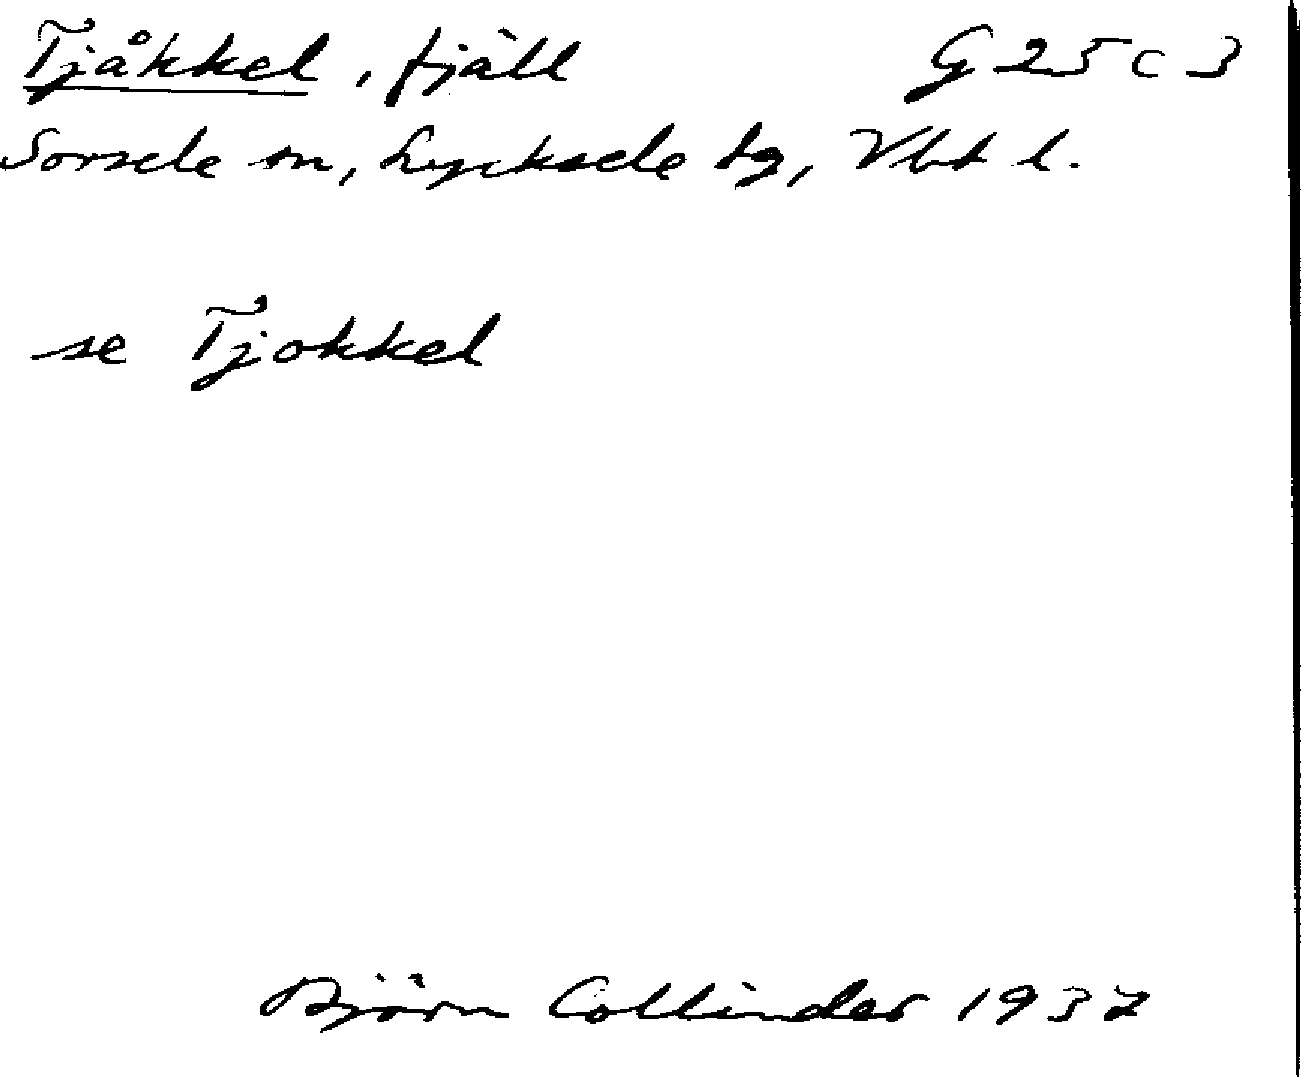 Tjåkkel, fjäll G 25 c 3
Sorsele sn, Lycksele lg, Vbt l.
se Tjokkel
Björn Collinder 1937